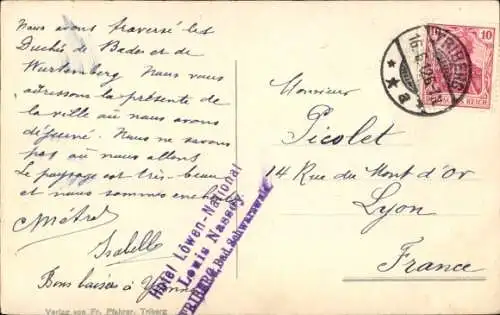 Nous avons traversé les
Duchés de Bades et de
Wurtemberg Nous vous
adressons la présente de
la ville où nous avons
déjeuné. Nous ne savons
pas où nous allons
Le paysage est très-beau
et nous sommes
Isabelle
Bons baisers à
Verlag von Fr. Pfahrer, Triberg
Hôtel Löwen-National
Louis Nassoy
TRIBERG, Bad. Schwarzwald
TRIBERG
10
REICH
Monsieur
Picolet
14 Rue du Mont d'Or
Lyon
France